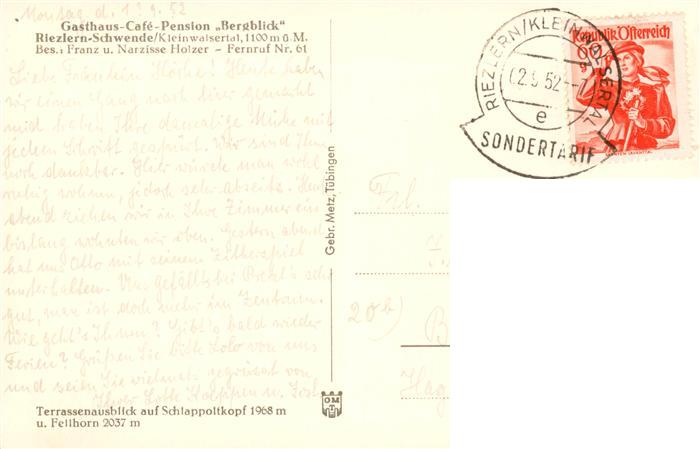 Montag d. 1. 9. 52
Gasthaus-Café-Pension „Bergblick“
Riezlern-Schwende/Kleinwalsertal, 1100 m ü. M.
Bes.: Franz u. Narzisse Holzer - Fernruf Nr. 61
Liebe Fräulein! Heute haben
wir einen Gang nach hier gemacht
und haben Ihre damalige Mühe mit
jedem Schritt gespürt. Wir sind Ihnen
noch dankbar. Hier würde man wohl
ruhig wohnen, jedoch sehr abseits. Heute
abend ziehen wir in Ihre Zimmer ein
bislang wohnten wir oben. Gestern abend
hat uns Otto mit seinem Zitherspiel
unterhalten. Uns gefällt's bei sehr
gut, man ist doch mehr im Zentrum.
Wie geht's Ihnen? Gibt's bald wieder
Ferien? Grüßen Sie bitte Lolo von uns
und seien Sie vielmals gegrüsst von
Ihrer Lotte u.
Terrassenausblick auf Schlappoltkopf 1968 m
u. Fellhorn 2037 m
Gebr. Metz, Tübingen
OMT
RIEZLERN/KLEINWALSERTAL
02.9.52
e
SONDERTARIF
Republik Österreich
Frl.
(20b)
B
Hag